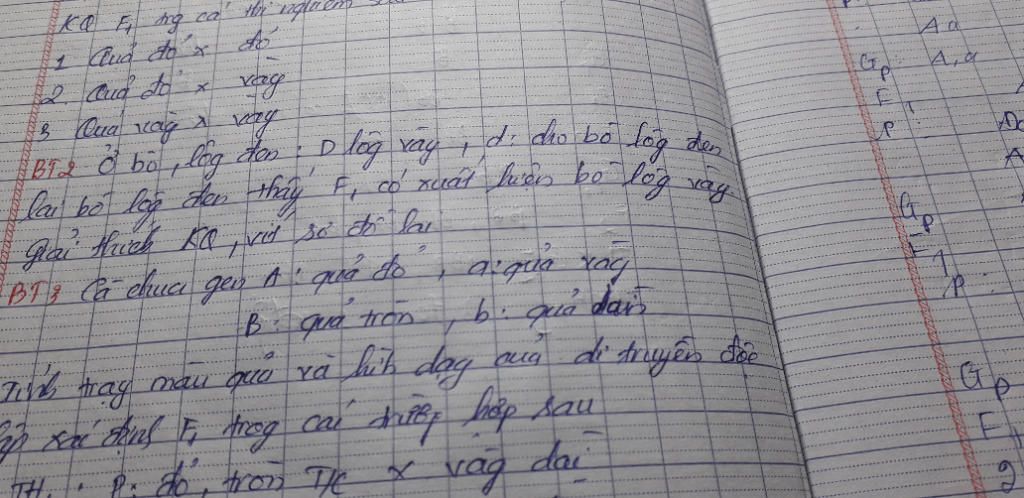 KQ F1 trg các thí nghiệm sau
1 Quả đỏ x đỏ
2. Quả đỏ x vàg
3 Quả vàg x vàg
BT2 Ở bò, lôg đen: D lôg vàg, d: cho bò lôg đen
lai bò lôg đen thấy F1 có xuất hiện bò lôg vàg
giải thích KQ, viết sơ đồ lai
BT3 Cà chua gen A: quả đỏ, a: quả vàg
B: quả tròn, b: quả dài
Tính trạg màu quả và hìh dạg quả di truyền độc
lập xác định F1 trog các trườg hợp sau
TH1: P: đỏ, tròn T/C x vàg dài
P:
Aa
Gp: A, a
F1
P:
Gp
F1
P:
Gp
F1
2